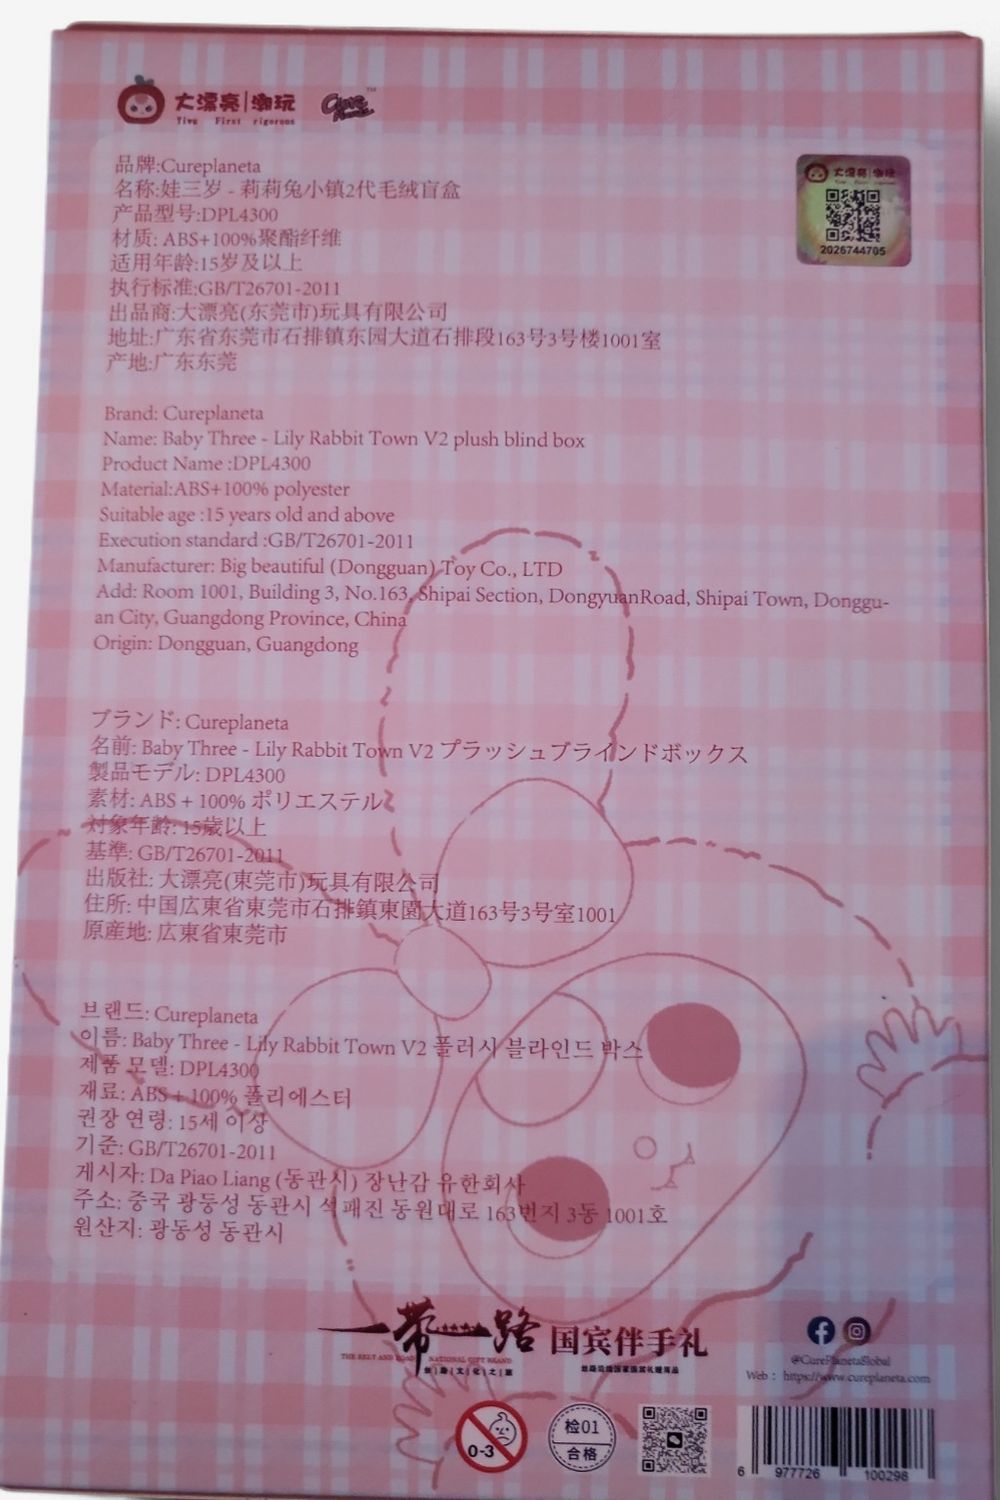 大漂亮|潮玩
Yive First rigorous
Cure Planeta TM
大漂亮|潮玩
2026744705
品牌:Cureplaneta
名称:娃三岁 - 莉莉兔小镇2代毛绒盲盒
产品型号:DPL4300
材质: ABS+100%聚酯纤维
适用年龄:15岁及以上
执行标准:GB/T26701-2011
出品商:大漂亮(东莞市)玩具有限公司
地址:广东省东莞市石排镇东园大道石排段163号3号楼1001室
产地:广东东莞
Brand: Cureplaneta
Name: Baby Three - Lily Rabbit Town V2 plush blind box
Product Name :DPL4300
Material:ABS+100% polyester
Suitable age :15 years old and above
Execution standard :GB/T26701-2011
Manufacturer: Big beautiful (Dongguan) Toy Co., LTD
Add: Room 1001, Building 3, No.163, Shipai Section, DongyuanRoad, Shipai Town, Donggu-
an City, Guangdong Province, China
Origin: Dongguan, Guangdong
ブランド: Cureplaneta
名前: Baby Three - Lily Rabbit Town V2 プラッシュブラインドボックス
製品モデル: DPL4300
素材: ABS + 100% ポリエステル
対象年齢: 15歳以上
基準: GB/T26701-2011
出版社: 大漂亮(東莞市)玩具有限公司
住所: 中国広東省東莞市石排鎮東園大道163号3号室1001
原産地: 広東省東莞市
브랜드: Cureplaneta
이름: Baby Three - Lily Rabbit Town V2 플러시 블라인드 박스
제품 모델: DPL4300
재료: ABS + 100% 폴리에스터
권장 연령: 15세 이상
기준: GB/T26701-2011
게시자: Da Piao Liang (동관시) 장난감 유한회사
주소: 중국 광둥성 동관시 석패진 동원대로 163번지 3동 1001호
원산지: 광동성 동관시
一带一路 国宾伴手礼
THE BELT AND ROAD NATIONAL GIFT BRAND
丝|路|文|化|之|旅
@CurePlanetaGlobal
Web : https://www.cureplaneta.com
0-3
检01
合格
6 977726 100298